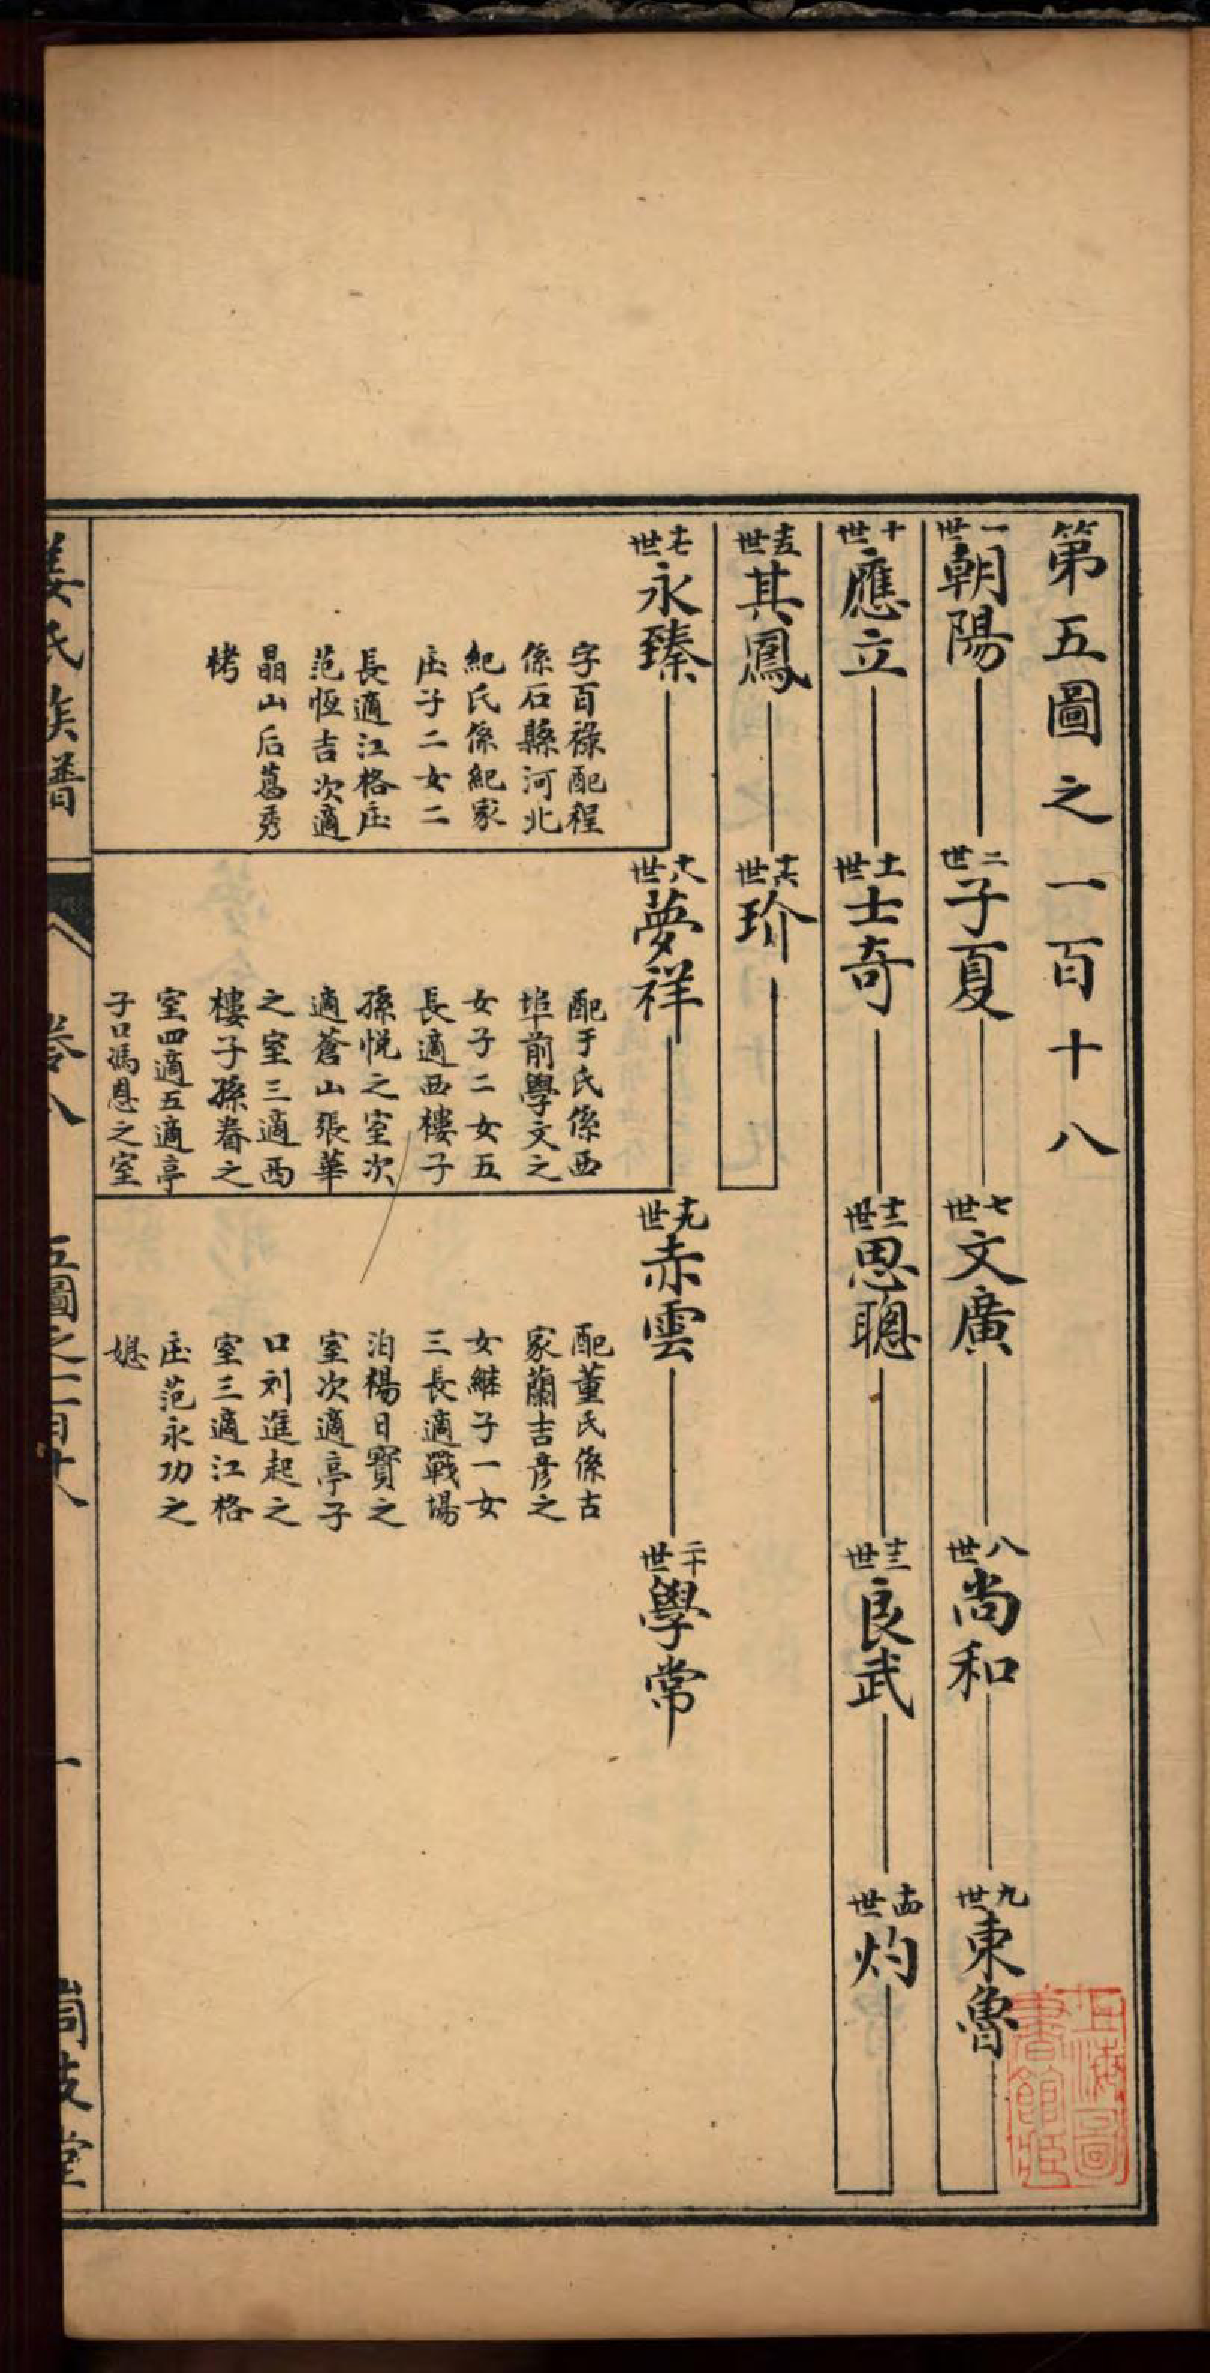 第五圖之一百十八
一世
朝陽
二世
子夏
七世
文廣
八世
尚和
九世
東魯
十世
應立
十一世
士奇
十二世
思聰
十三世
良武
十四世
灼
十五世
其鳳
十六世
玠
十七世
永臻
字百祿配程
係石縣河北
紀氏係紀家
庄子二女二
長適江格庄
范恆吉次適
晶山后葛秀
栲
十八世
夢祥
配于氏係西
埠前學文之
女子二女五
長適西樓子
孫悅之室次
適蒼山張華
之室三適西
樓子孫眷之
室四適五適亭
子口馮恩之室
十九世
赤雲
配董氏係古
家蘭吉彥之
女継子一女
三長適戰場
泊楊日寶之
室次適亭子
口刘進起之
室三適江格
庄范永功之
媳
二十世
學常
姜氏族譜
卷八
五圖之一百十八
一
上海圖
書館藏